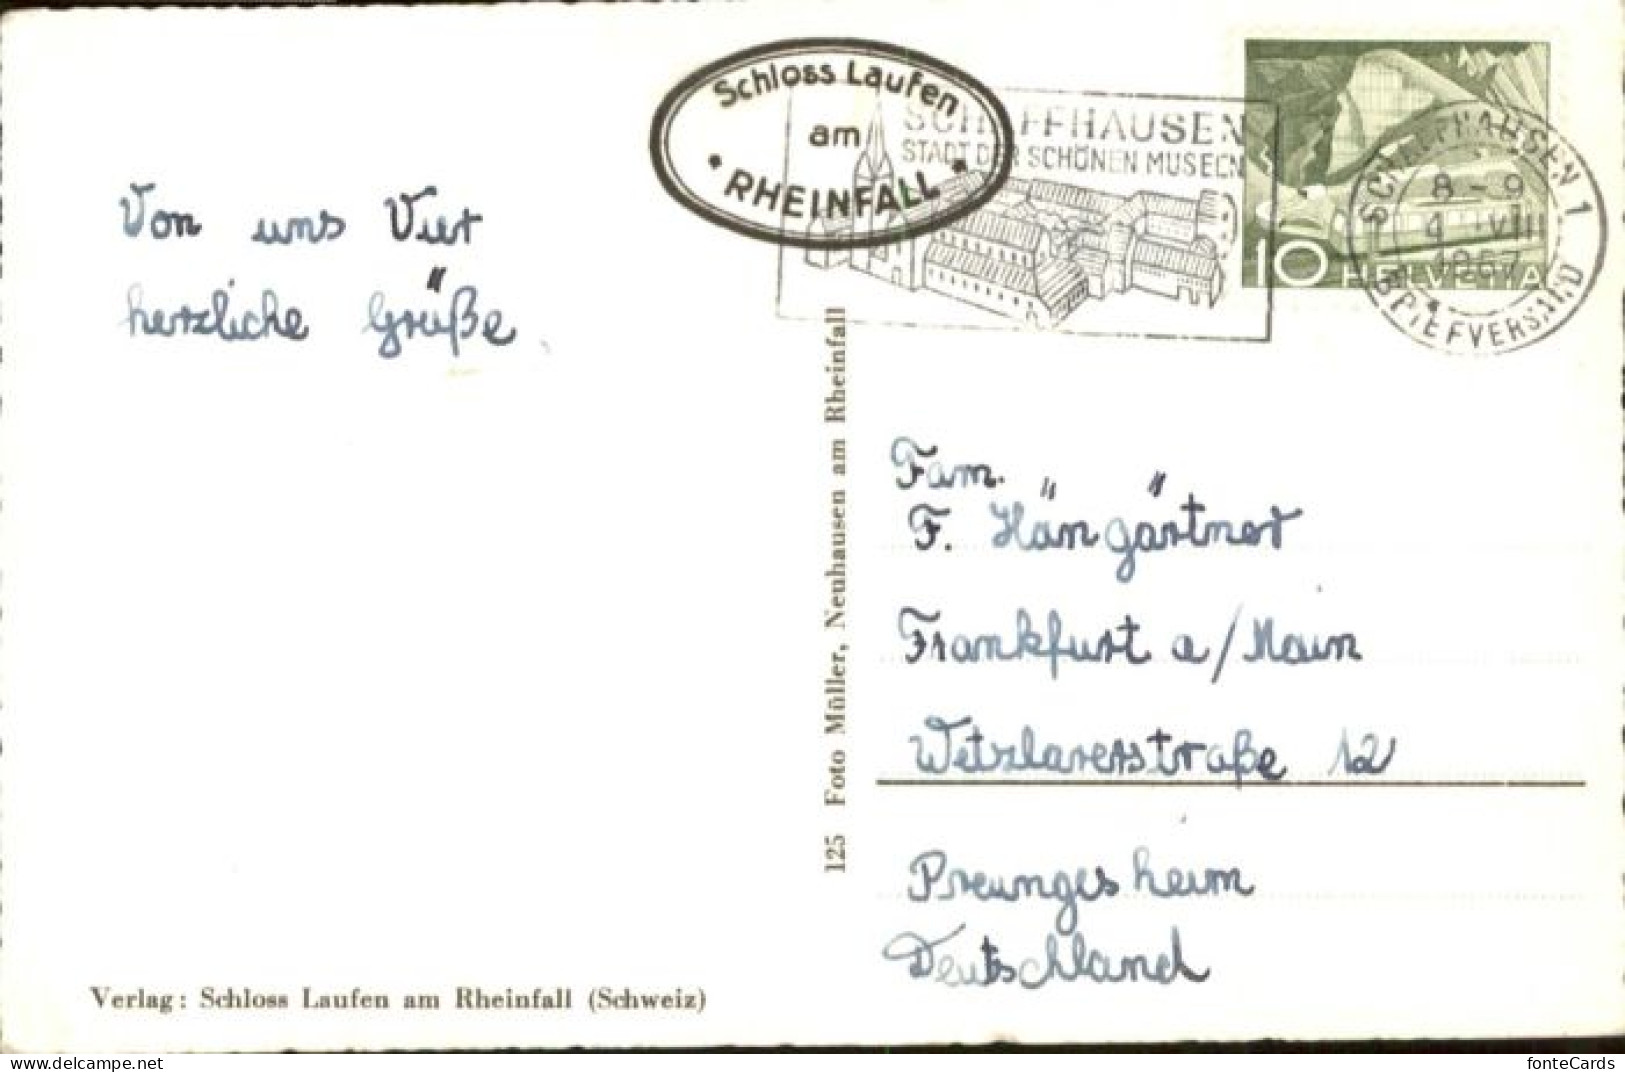 Schloss Laufen
am
RHEINFALL
SCHAFFHAUSEN
STADT DER SCHÖNEN MUSEEN
SCHAFFHAUSEN 1
8-9
1957
BRIEFVERSAND
10 HELVETIA
Von uns Vier
herzliche Grüße
125 Foto Müller, Neuhausen am Rheinfall
Fam.
F. Hängärtner
Frankfurt a/Main
Wetzlarerstraße 12
Preungesheim
Deutschland
Verlag: Schloss Laufen am Rheinfall (Schweiz)
delcampe.net
fonteCards